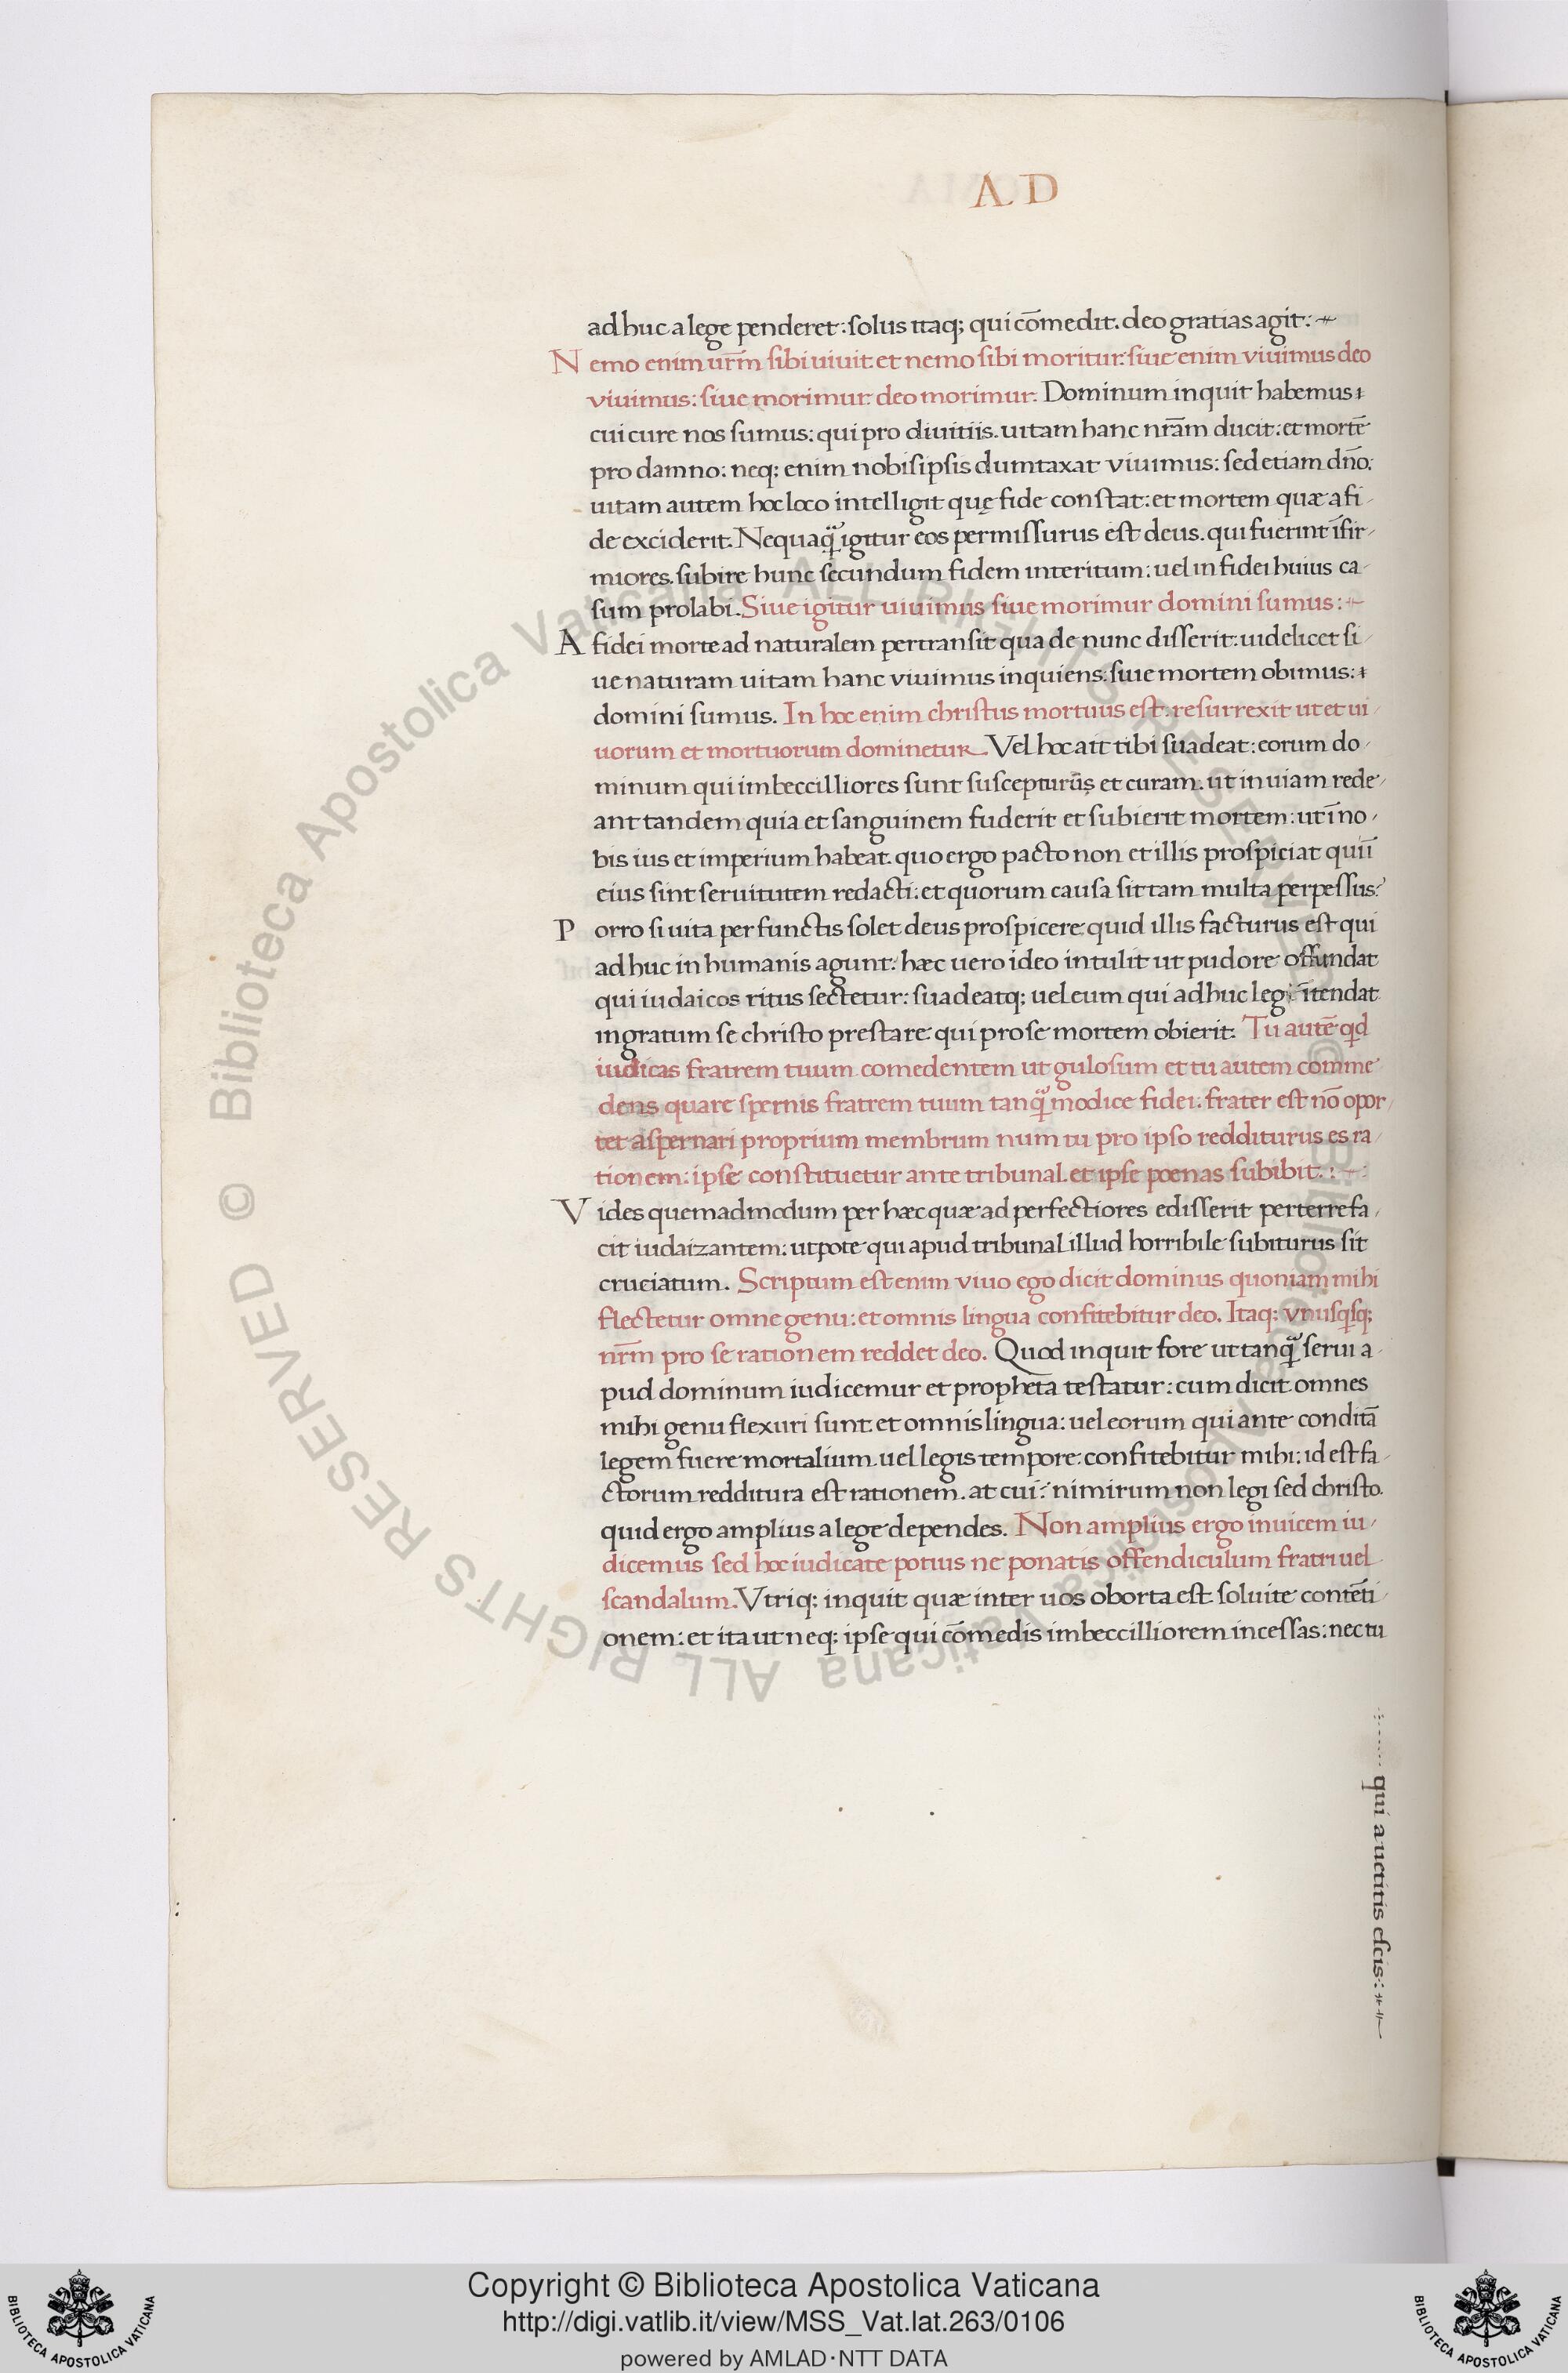 AD
adhuc a lege penderet: solus itaq; qui cōmedit. deo gratias agit:
Nemo enim ur̄m sibi uiuit et nemo sibi moritur: siue enim viuimus deo
viuimus: siue morimur deo morimur. Dominum inquit habemus
cui cure nos sumus: qui pro diuitiis. uitam hanc nr̄am ducit: et mortē
pro damno: neq; enim nobis ipsis dumtaxat viuimus: sed etiam dn̄o:
uitam autem hoc loco intelligit quę fide constat: et mortem quæ a fi-
de exciderit. Nequaq̄ igitur eos permissurus est deus. qui fuerint īfir-
miores. subire hunc secundum fidem interitum: uel in fidei huius ca-
sum prolabi. Siue igitur uiuimus siue morimur domini sumus:
A fidei morte ad naturalem pertransit qua de nunc disserit: uidelicet si-
ue naturam uitam hanc viuimus inquiens: siue mortem obimus:
domini sumus. In hoc enim christus mortuus est. resurrexit ut et ui-
uorum et mortuorum dominetur. Vel hoc ait tibi suadeat: eorum do-
minum qui imbeccilliores sunt suscepturūs et curam. ut in uiam rede-
ant tandem quia et sanguinem fuderit et subierit mortem: ut ī no-
bis ius et imperium habeat. quo ergo pacto non et illis prospiciat quū
eius sint seruitutem redacti: et quorum causa sit tam multa perpessus?
Porro si uita perfunctis solet deus prospicere quid illis facturus est qui
adhuc in humanis agunt: hæc uero ideo intulit ut pudore offundat
qui iudaicos ritus sectetur: suadeatq; uel eum qui adhuc legi ītendat
ingratum se christo prestare qui pro se mortem obierit. Tu autē qd
iudicas fratrem tuum comedentem ut gulosum et tu autem comme-
dens quare spernis fratrem tuum tanq̄ modice fidei. frater est nō opor-
tet aspernari proprium membrum num tu pro ipso redditurus es ra-
tionem: ipse constituetur ante tribunal. et ipse poenas subibit.:
Vides quemadmodum per hæc quæ ad perfectiores edisserit perterrefa-
cit iudaizantem: utpote qui apud tribunal illud horribile subiturus sit
cruciatum. Scriptum est enim viuo ego dicit dominus quoniam mihi
flectetur omne genu: et omnis lingua confitebitur deo. Itaq; vnusqsq;
nr̄m pro se rationem reddet deo. Quod inquit fore ut tanq̄ serui a-
pud dominum iudicemur et propheta testatur: cum dicit omnes
mihi genu flexuri sunt et omnis lingua: uel eorum qui ante conditā
legem fuere mortalium uel legis tempore: confitebitur mihi: id est fa-
ctorum redditura est rationem. at cui? nimirum non legi sed christo.
quid ergo amplius a lege dependes. Non amplius ergo inuicem iu-
dicemus sed hoc iudicate potius ne ponatis offendiculum fratri uel
scandalum. Vtriq; inquit quæ inter uos oborta est soluite contēti-
onem: et ita ut neq; ipse qui cōmedis imbeccilliorem incessas: nec tu
qui auctitis escis:
© Biblioteca Apostolica Vaticana ALL RIGHTS RESERVED © Biblioteca Apostolica Vaticana ALL RIGHTS RESERVED
Copyright © Biblioteca Apostolica Vaticana
http://digi.vatlib.it/view/MSS_Vat.lat.263/0106
powered by AMLAD·NTT DATA
BIBLIOTECA APOSTOLICA VATICANA
BIBLIOTECA APOSTOLICA VATICANA